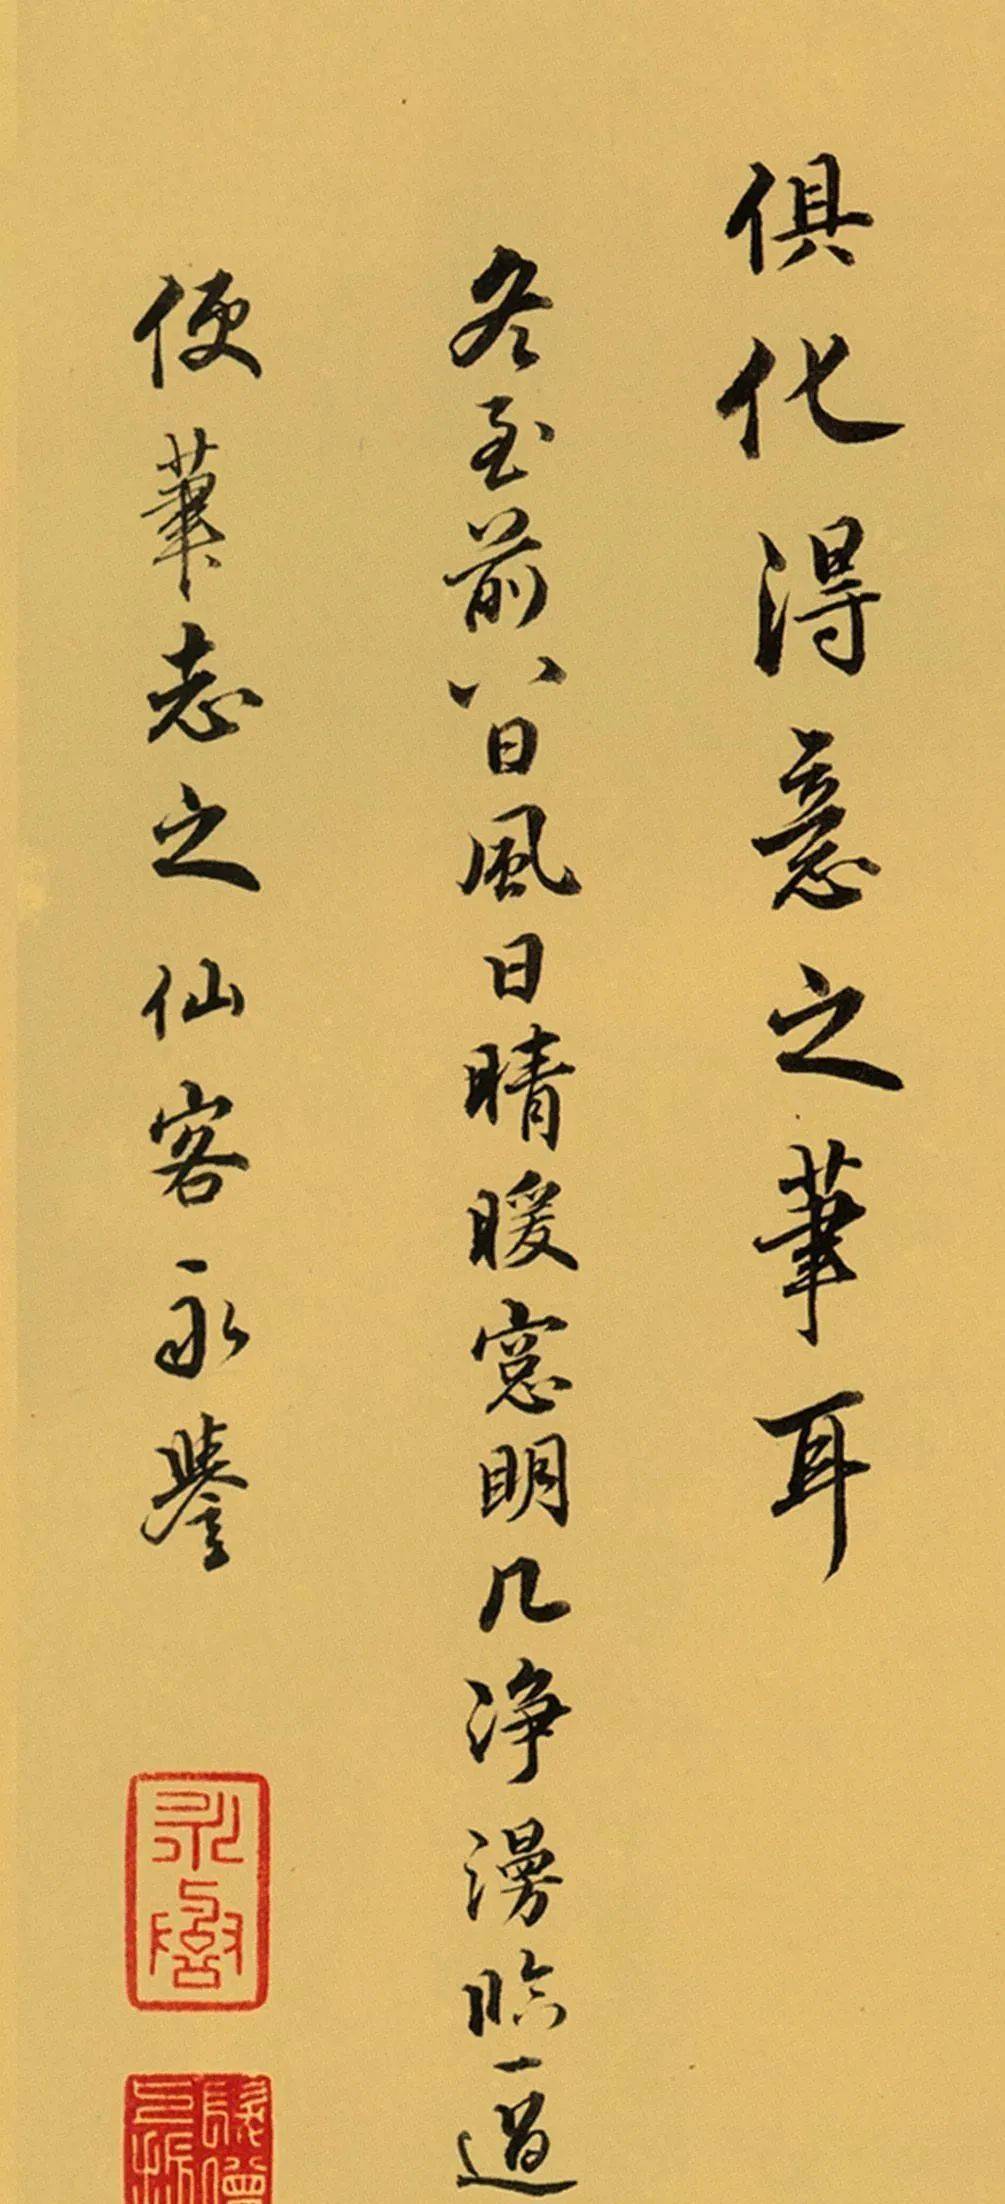 俱化得意之筆耳
冬至前八日風日晴暖窓明几浄漫臨一過
便筆志之仙客永譽
永譽